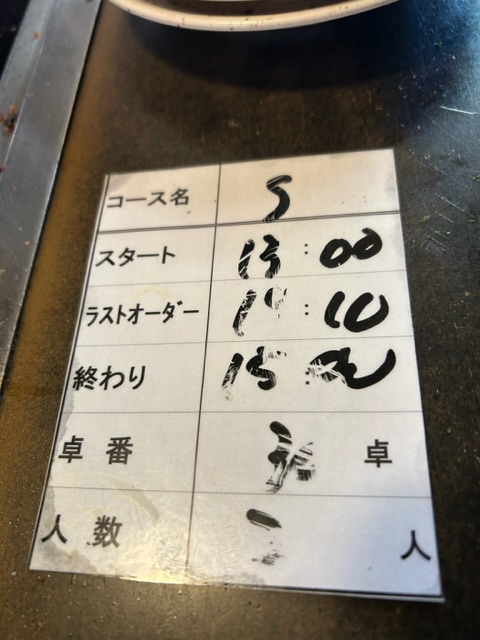 コース名 S
スタート 13:00
ラストオーダー : 10
終わり 15:
卓番 卓
人数 人